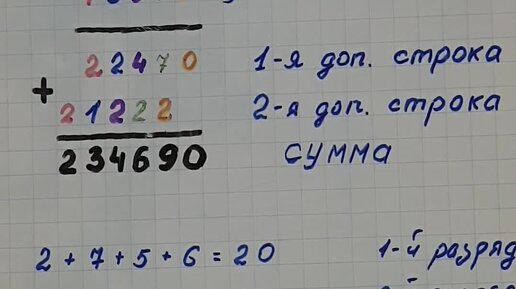 22470 1-я доп. строка
+
21222 2-я доп. строка
234690 сумма
2 + 7 + 5 + 6 = 20 1-й разряд